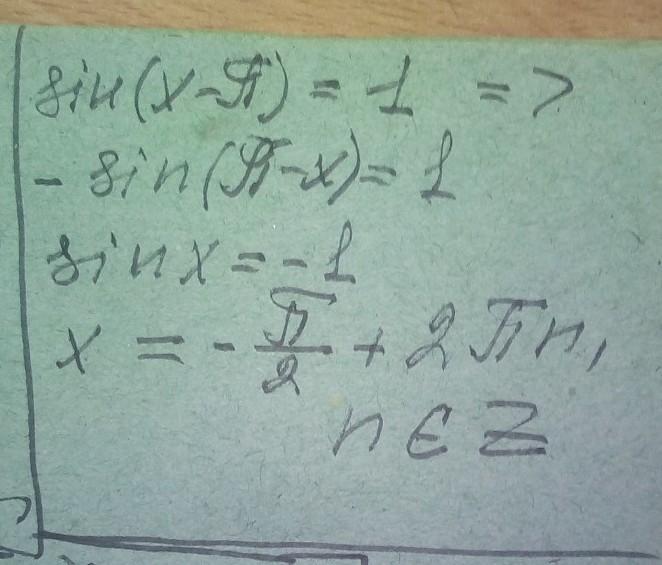 sin(x-π) = 1 =>
- sin(π-x) = 1
sin x = -1
x = - π/2 + 2πn,
n ∈ Z